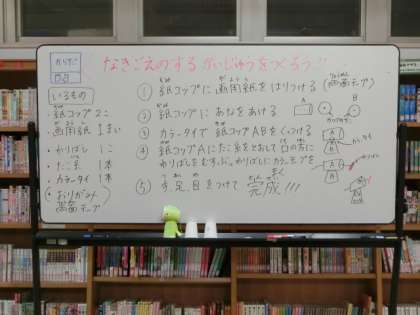 なきごえのする かいじゅうをつくろう!!
いるもの
・紙コップ 2こ
・画用紙 1まい
・わりばし 1こ
・たこ糸 1本
・カラータイ 1本
・おりがみ
両面テープ
① 紙コップに画用紙をはりつける(両面テープ)
② 紙コップにあなをあける
③ カラータイで紙コップABをくっつける
④ 紙コップAにたこ糸をとおして口の方に
わりばしをむすぶ。わりばしにカラーモールを
⑤ 手、足、目をつけて 完成!!!
A
B